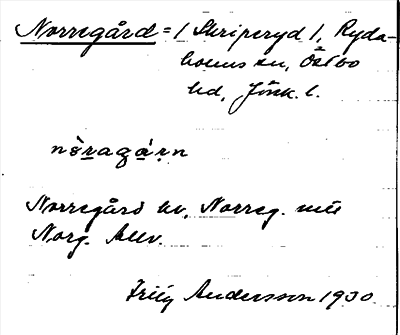 Norregård = 1 Skriperyd 1, Ryda-
holms sn, Östbo
hd, Jönk. l.
nòragá́rn
Norregård hv, Norreg. mtl
Norg. Allv.
Frits Andersson 1930